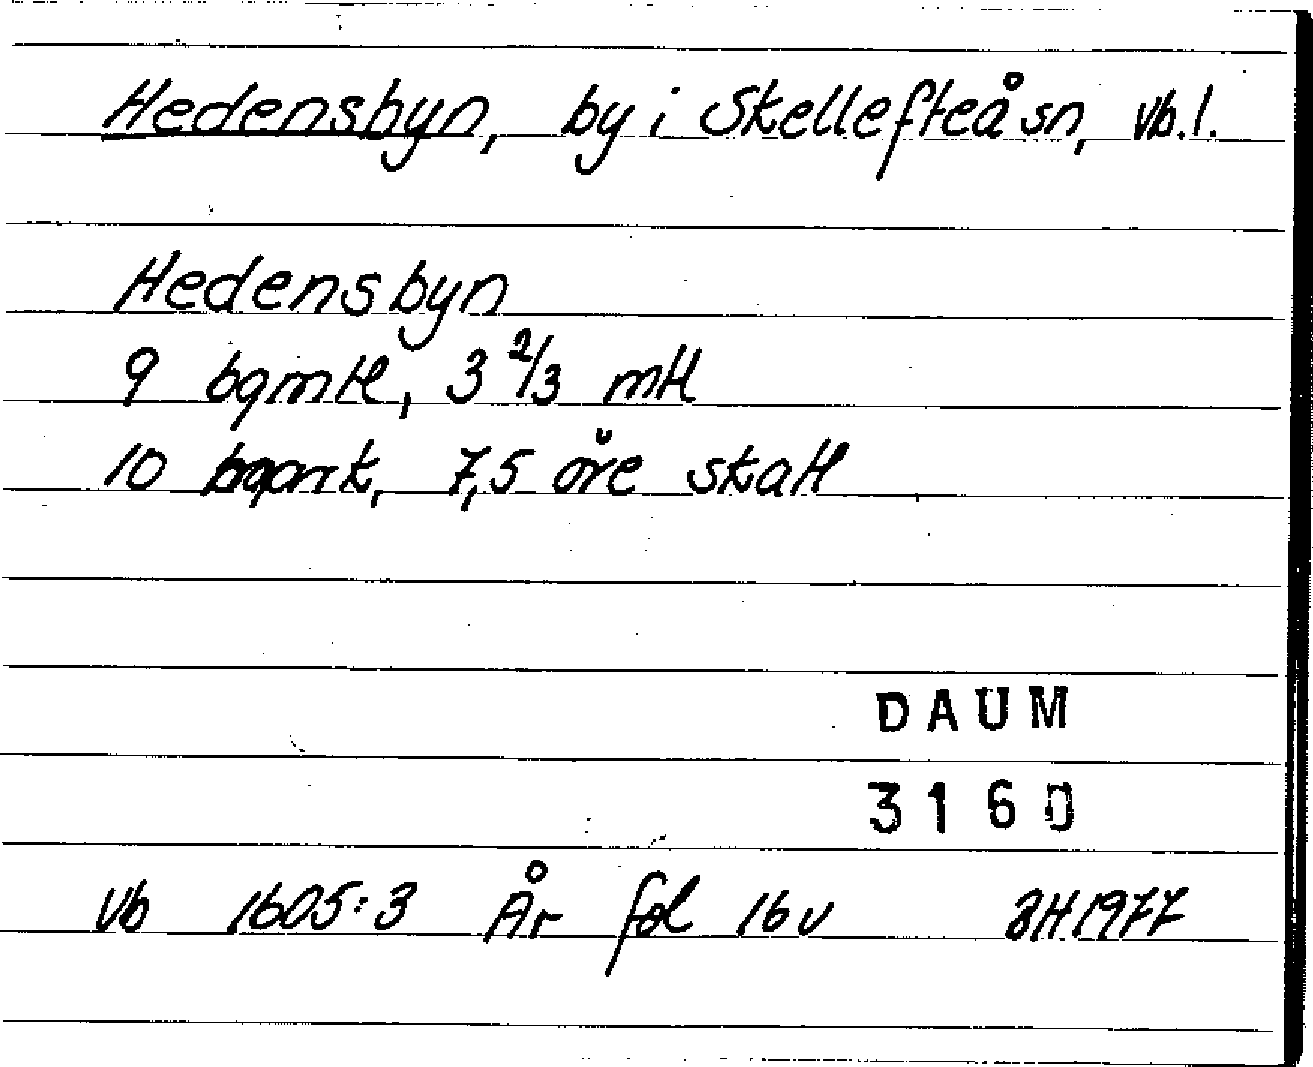 Hedensbyn, by i Skellefteå sn, Vb.l.
Hedensbyn
9 bgmtl, 3 2/3 mtl
10 öre skatt
DAUM
3160
Vb 1605:3 År fol 16v 1977